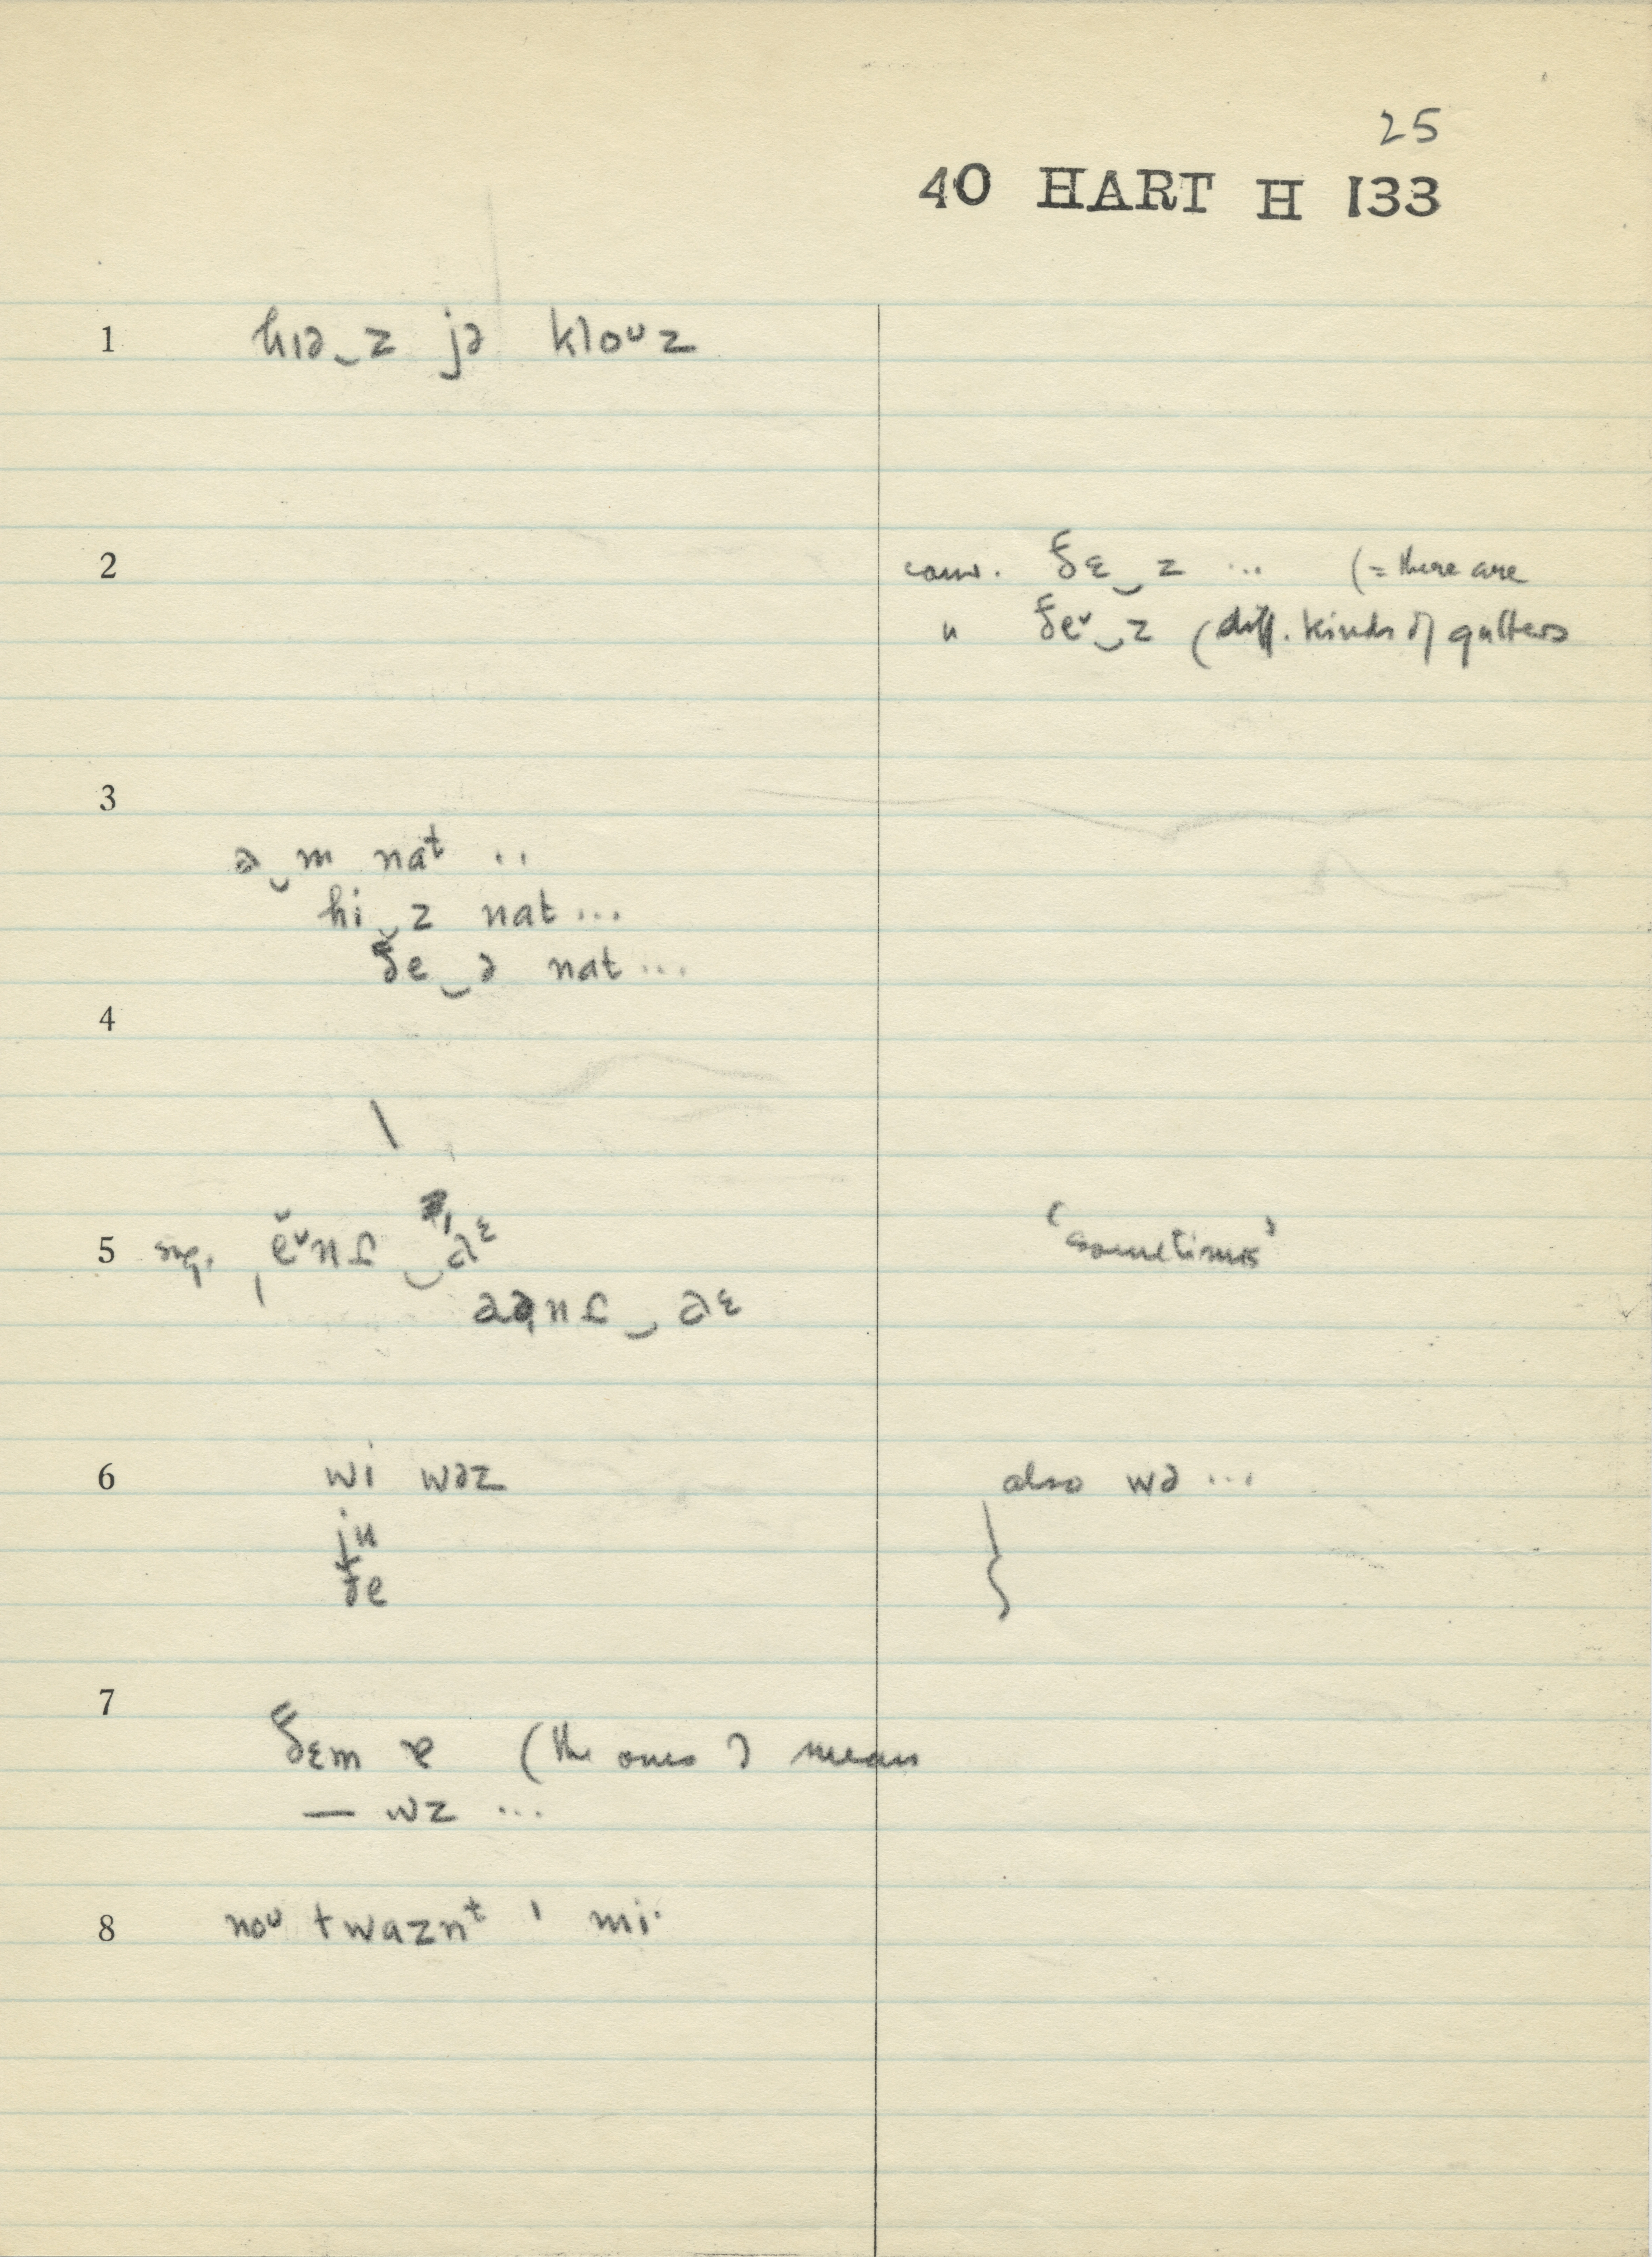 25
40 HART H 133
1 hɪə‿z jə kloᴜz
2 conv. ðɛ‿z ... (= there are
" ðeᵛ‿z (diff. kinds of gutters
3
ə‿m naᵗ ..
hi‿z nat ...
ðe‿ə nat ...
4
5 sug. ‘sometimes’
6 wi wəz also wə ...
ju }
ðe
7
ðɛm ɐ (the ones I mean
— wz ...
8 noᴜ twaznᵗ ' mi·